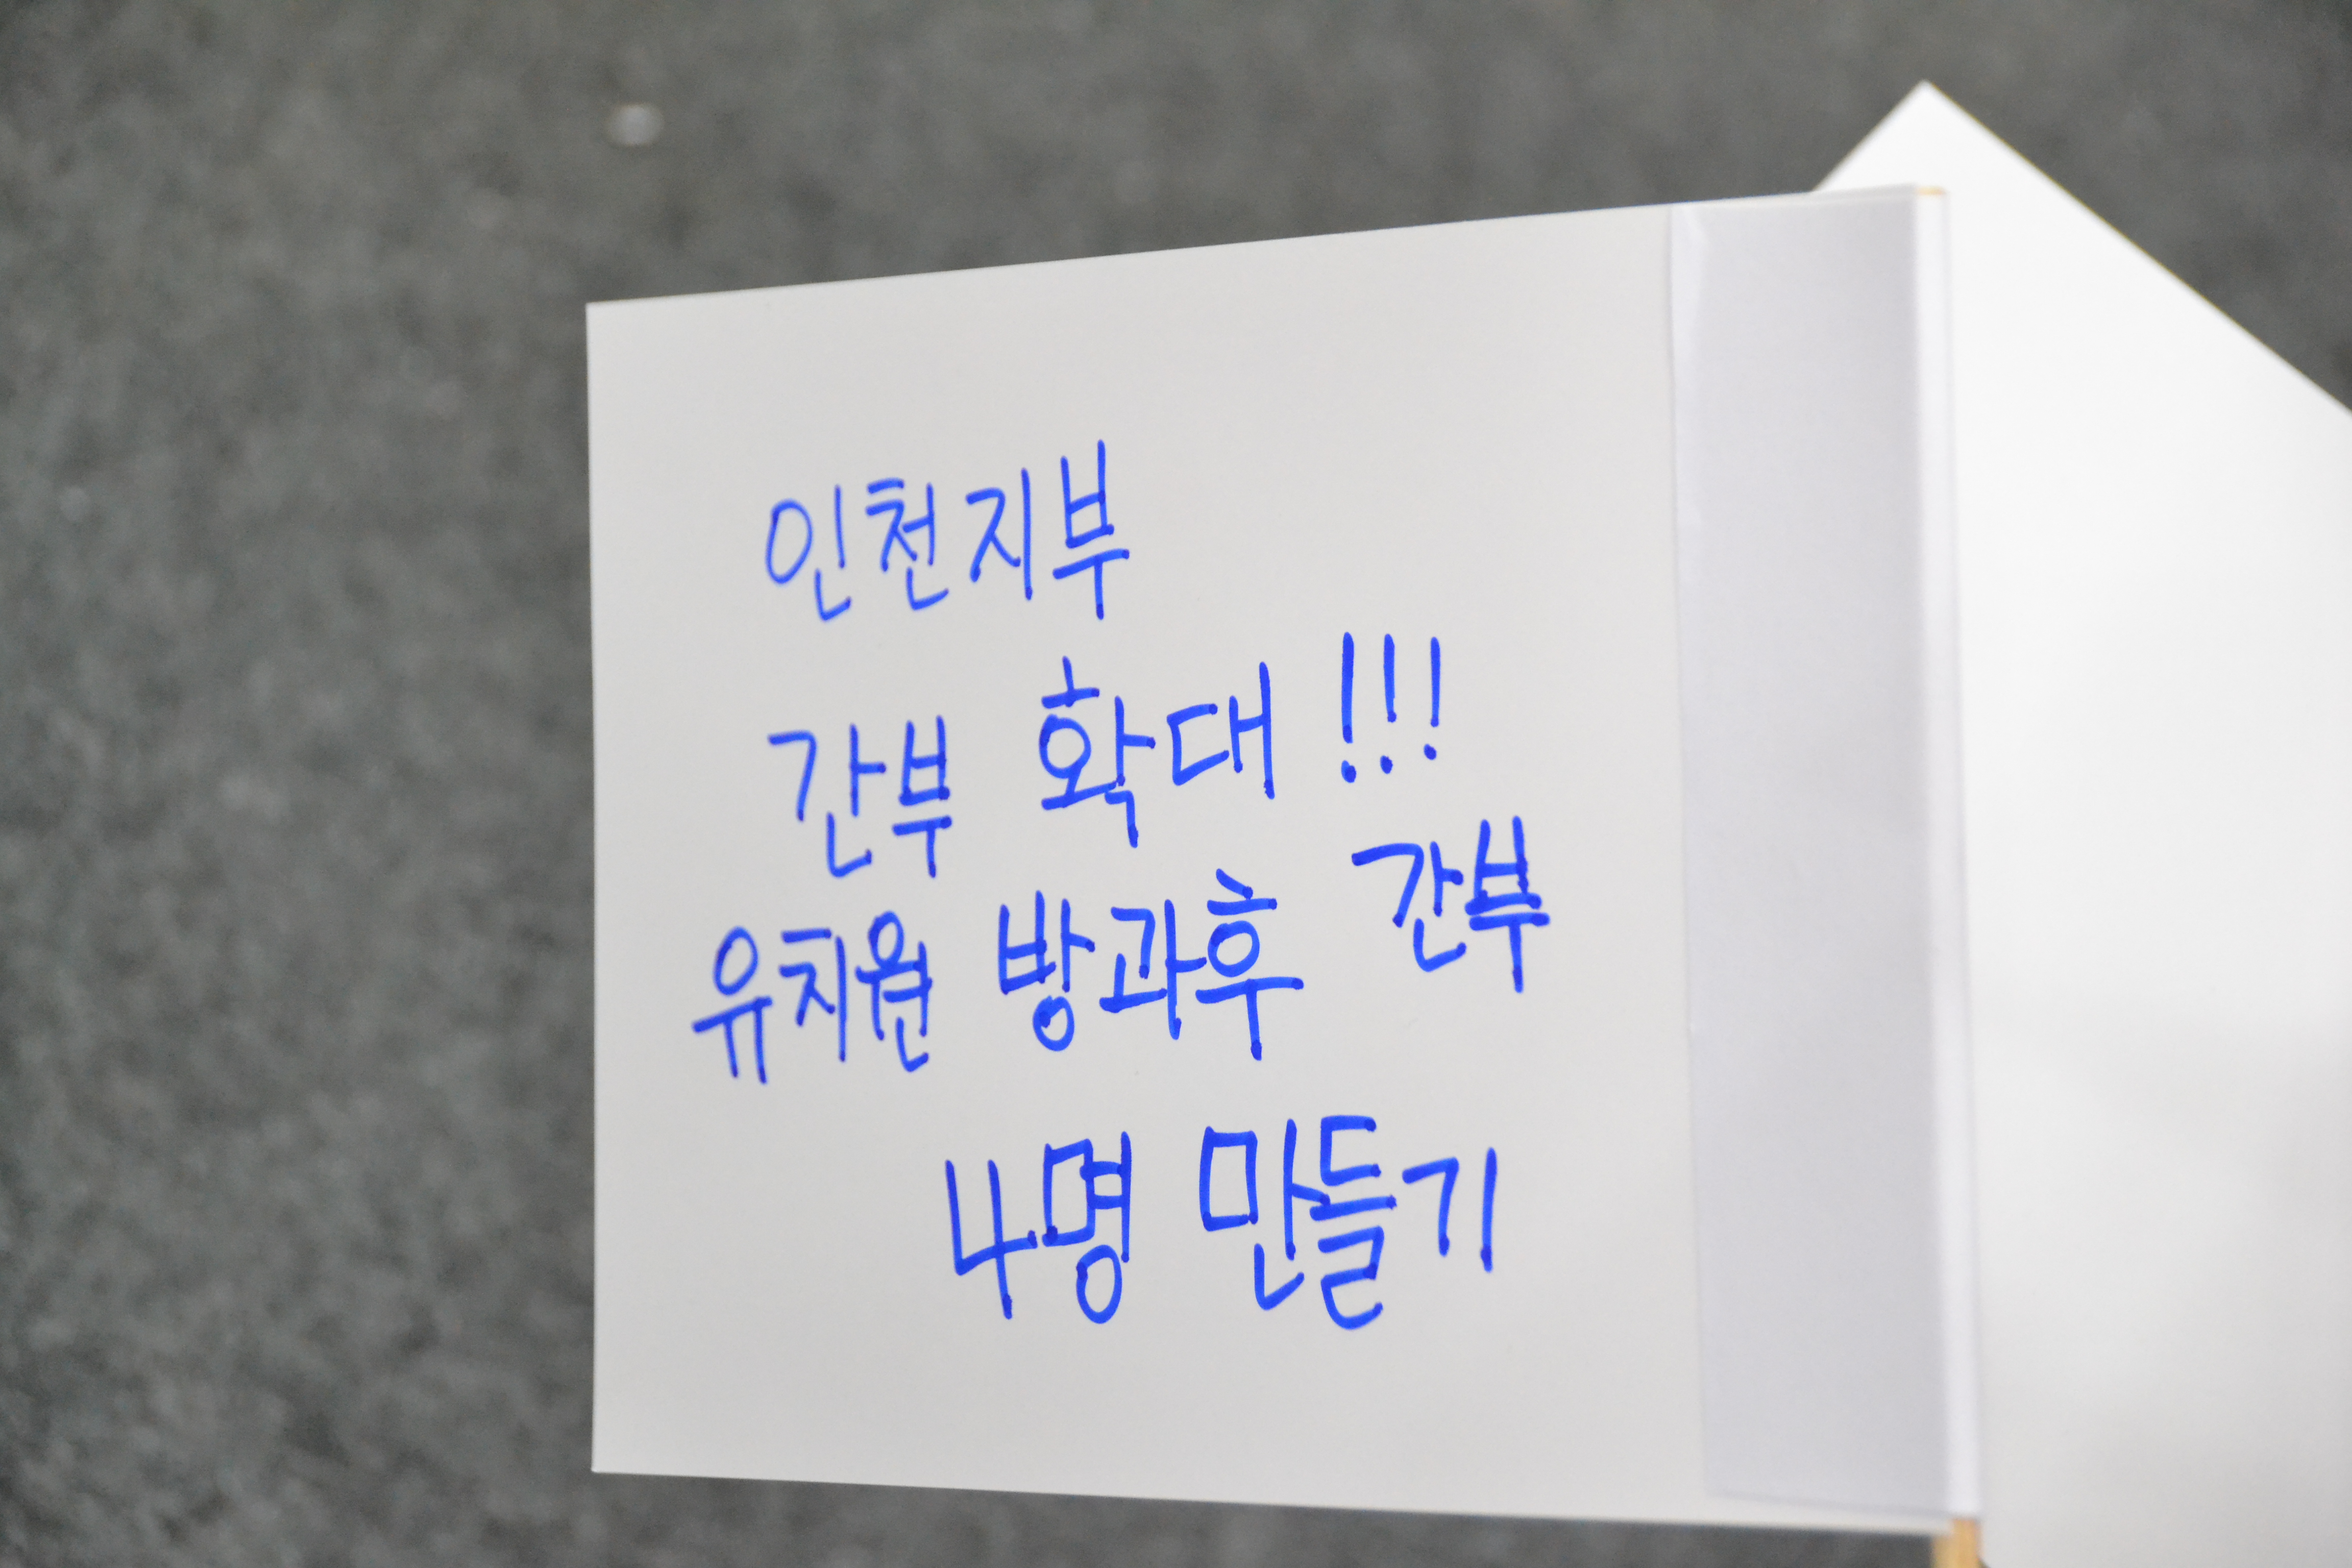 인천지부
간부 확대 !!!
유치원 방과후 간부
4명 만들기